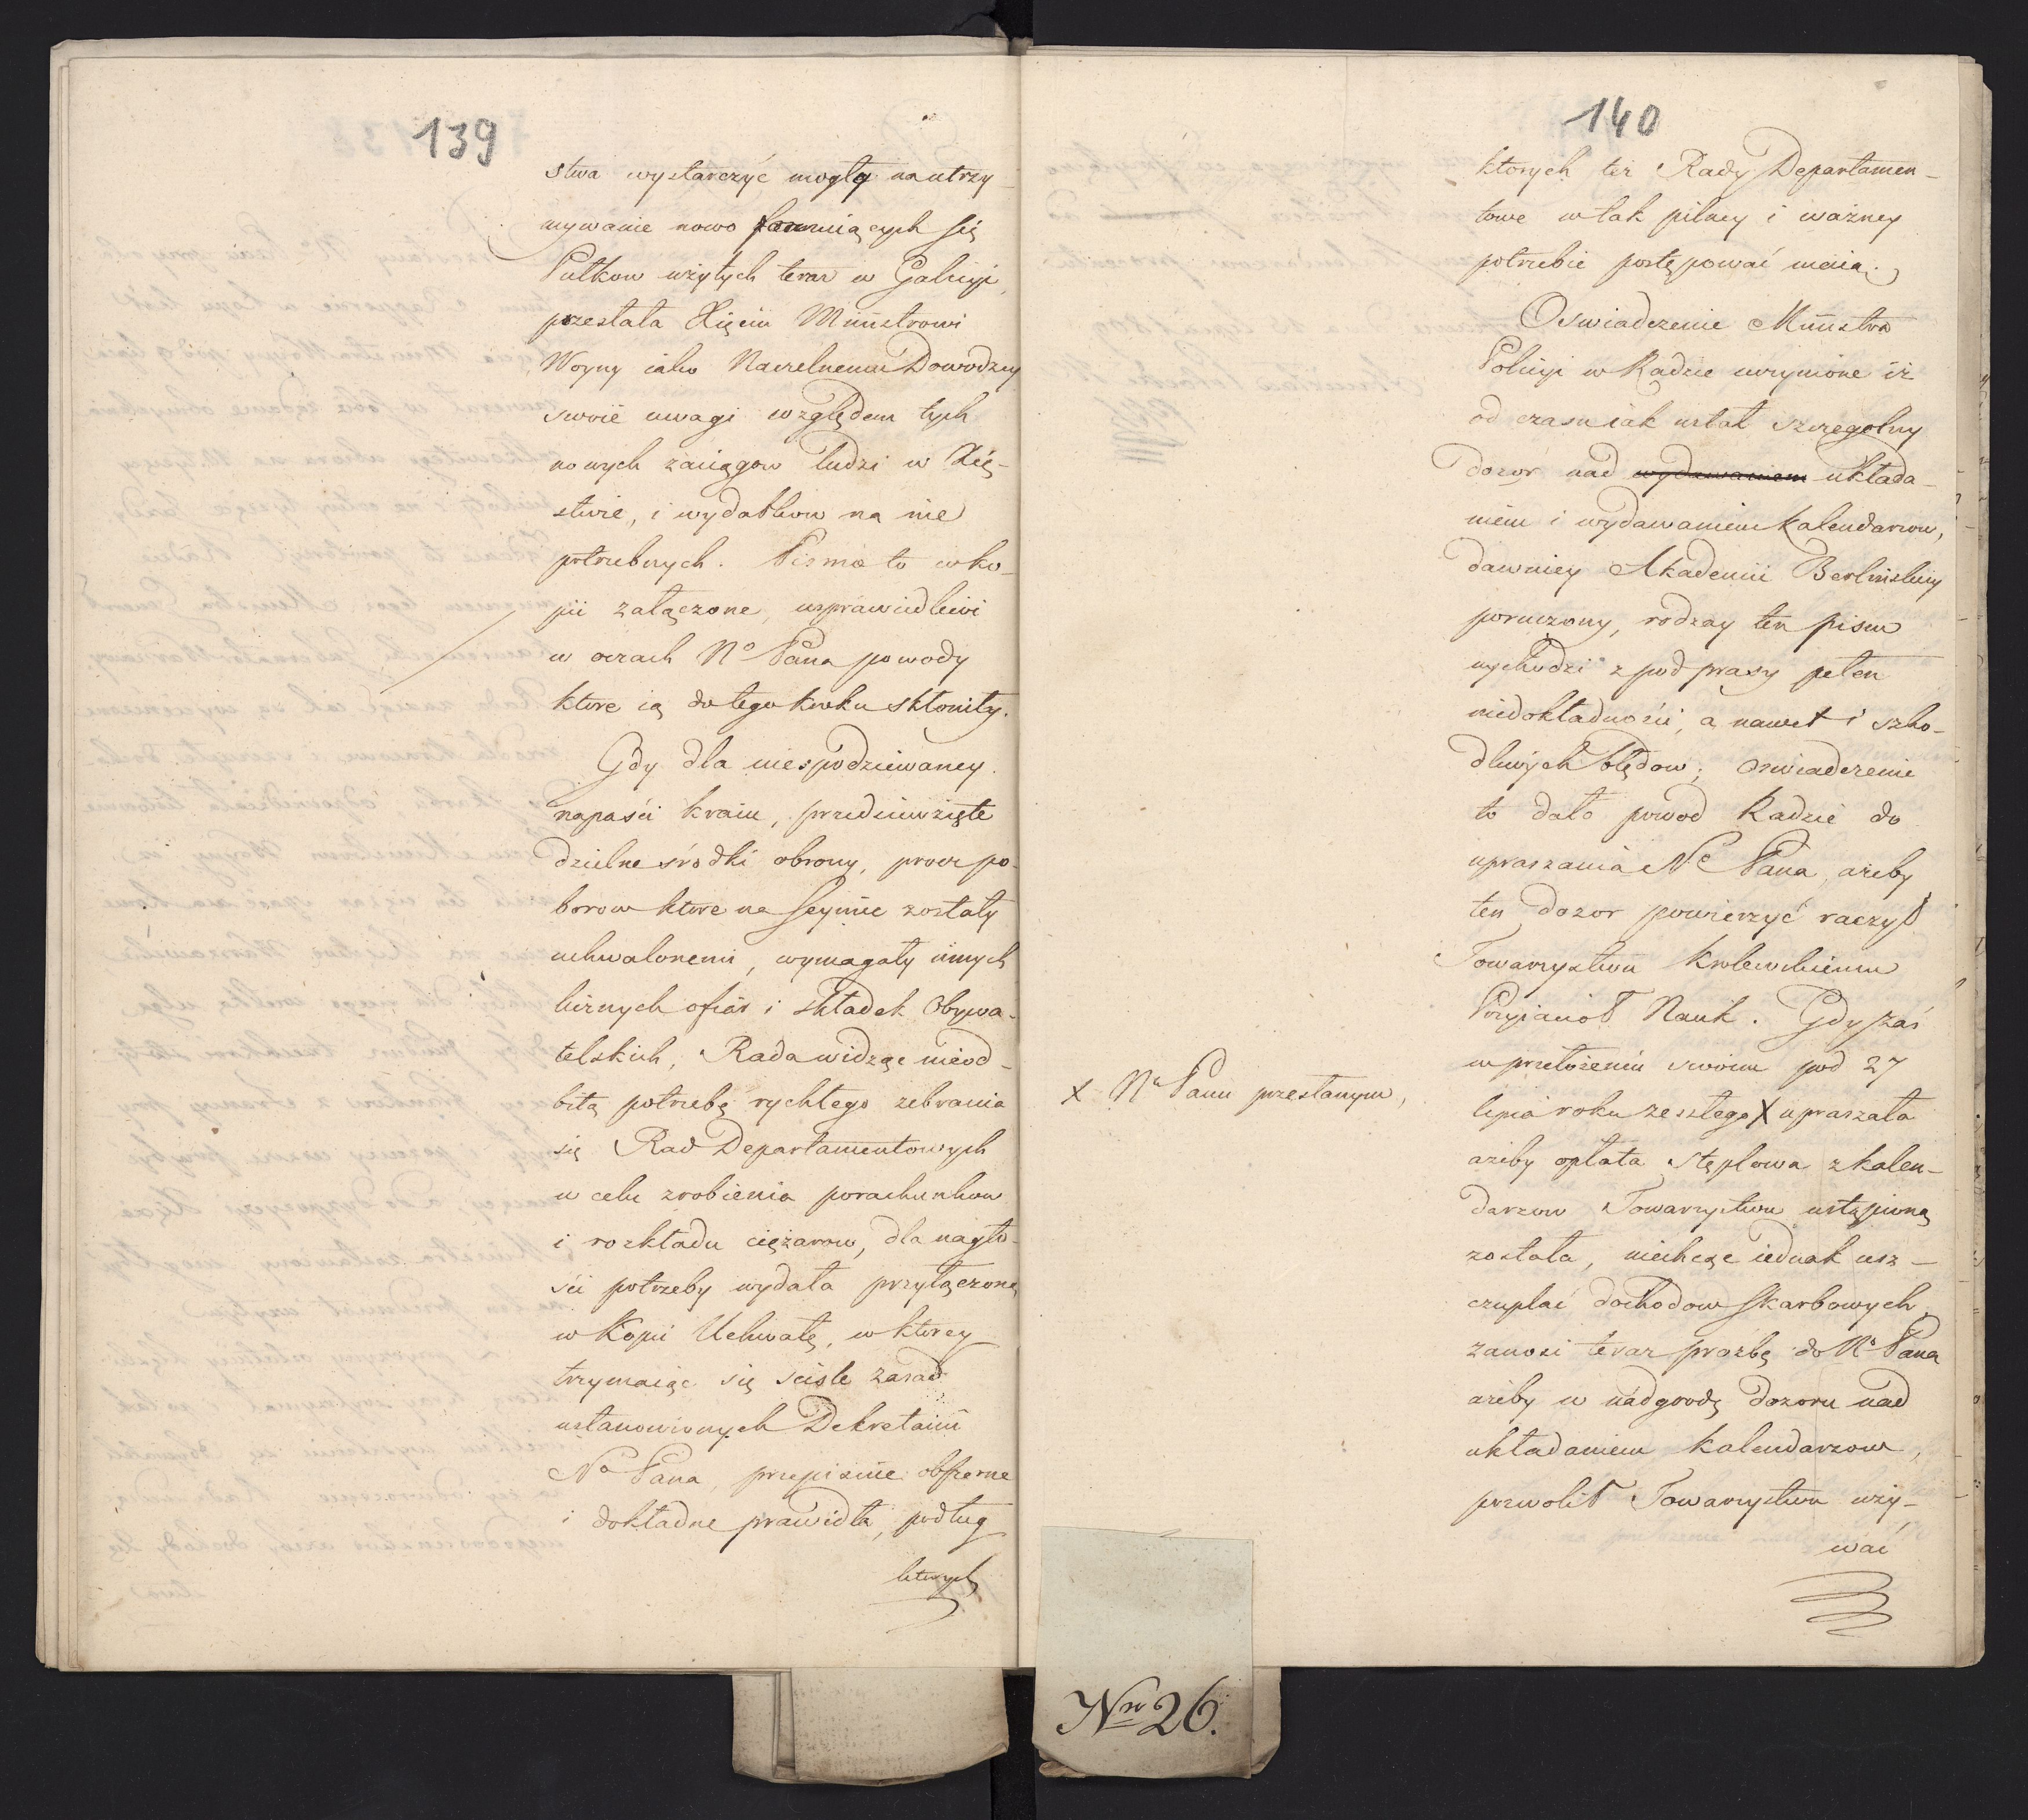 139
stwa wystarczyć mogły na utrzy-
mywanie nowo formuiących się
Pułkow użytych teraz w Galicyi,
przesłała Xięciu Ministrowi
Woyny iako Naczelnemu Dowodzcy
swoie uwagi względem tych
nowych zaciągow ludzi w Xię-
stwie, i wydatkow na nie
potrzebnych. Pismo to w ko-
pii załączone, usprawiedliwi
w oczach No Pana powody
ktore ią do tego kroku skłoniły.
Gdy dla niespodziewaney
napaści kraiu, przedsięwzięte
dzielne środki obrony, procz po-
borow ktore na Seymie zostały
uchwalonemi, wymagały innych
licznych ofiar i składek Obywa-
telskich, Rada widząc nieod-
bitą potrzebę rychłego zebrania
się Rad Departamentowych
w celu zrobienia porachunkow
i rozkładu ciężarow, dla nagło-
ści potrzeby wydała przyłączoną
w Kopii Uchwałę, w ktorey
trzymaiąc się ściśle zasad
ustanowionych Dekretami
No Pana, przepisuie obszerne
i dokładne prawidła, podług
ktorych
140
ktorych też Rady Departamen-
towe w tak pilney i ważney
potrzebie postępować maią.
Oswiadczenie Ministra
Policyi w Radzie uczynione iż
od czasu iak ustał szczegolny
dozor nad wydawaniem układa-
niem i wydawaniem Kalendarzow,
dawniey Akademii Berlinskiey
poruczony, rodzay ten pism
wychodzi z pod prasy pełen
niedokładności, a nawet i szko-
dliwych błędow; oswiadczenie
to dało powod Radzie do
upraszania No Pana, ażeby
ten dozor powierzyć raczył
Towarzystwu Krolewskiemu
Przyiacioł Nauk. Gdy zaś
w przełożeniu swoim pod 27
lipca roku zeszłego X upraszała
X No Panu przesłanym,
ażeby opłata stęplowa z kalen-
darzow Towarzystwu ustąpioną
została, niechcąc iednak usz-
czuplać dochodow Skarbowych,
zanosi teraz prozbę do No Pana
ażeby w nadgrodę dozoru nad
układaniem kalendarzow,
pozwolił Towarzystwu uży-
wać
Nro 26.